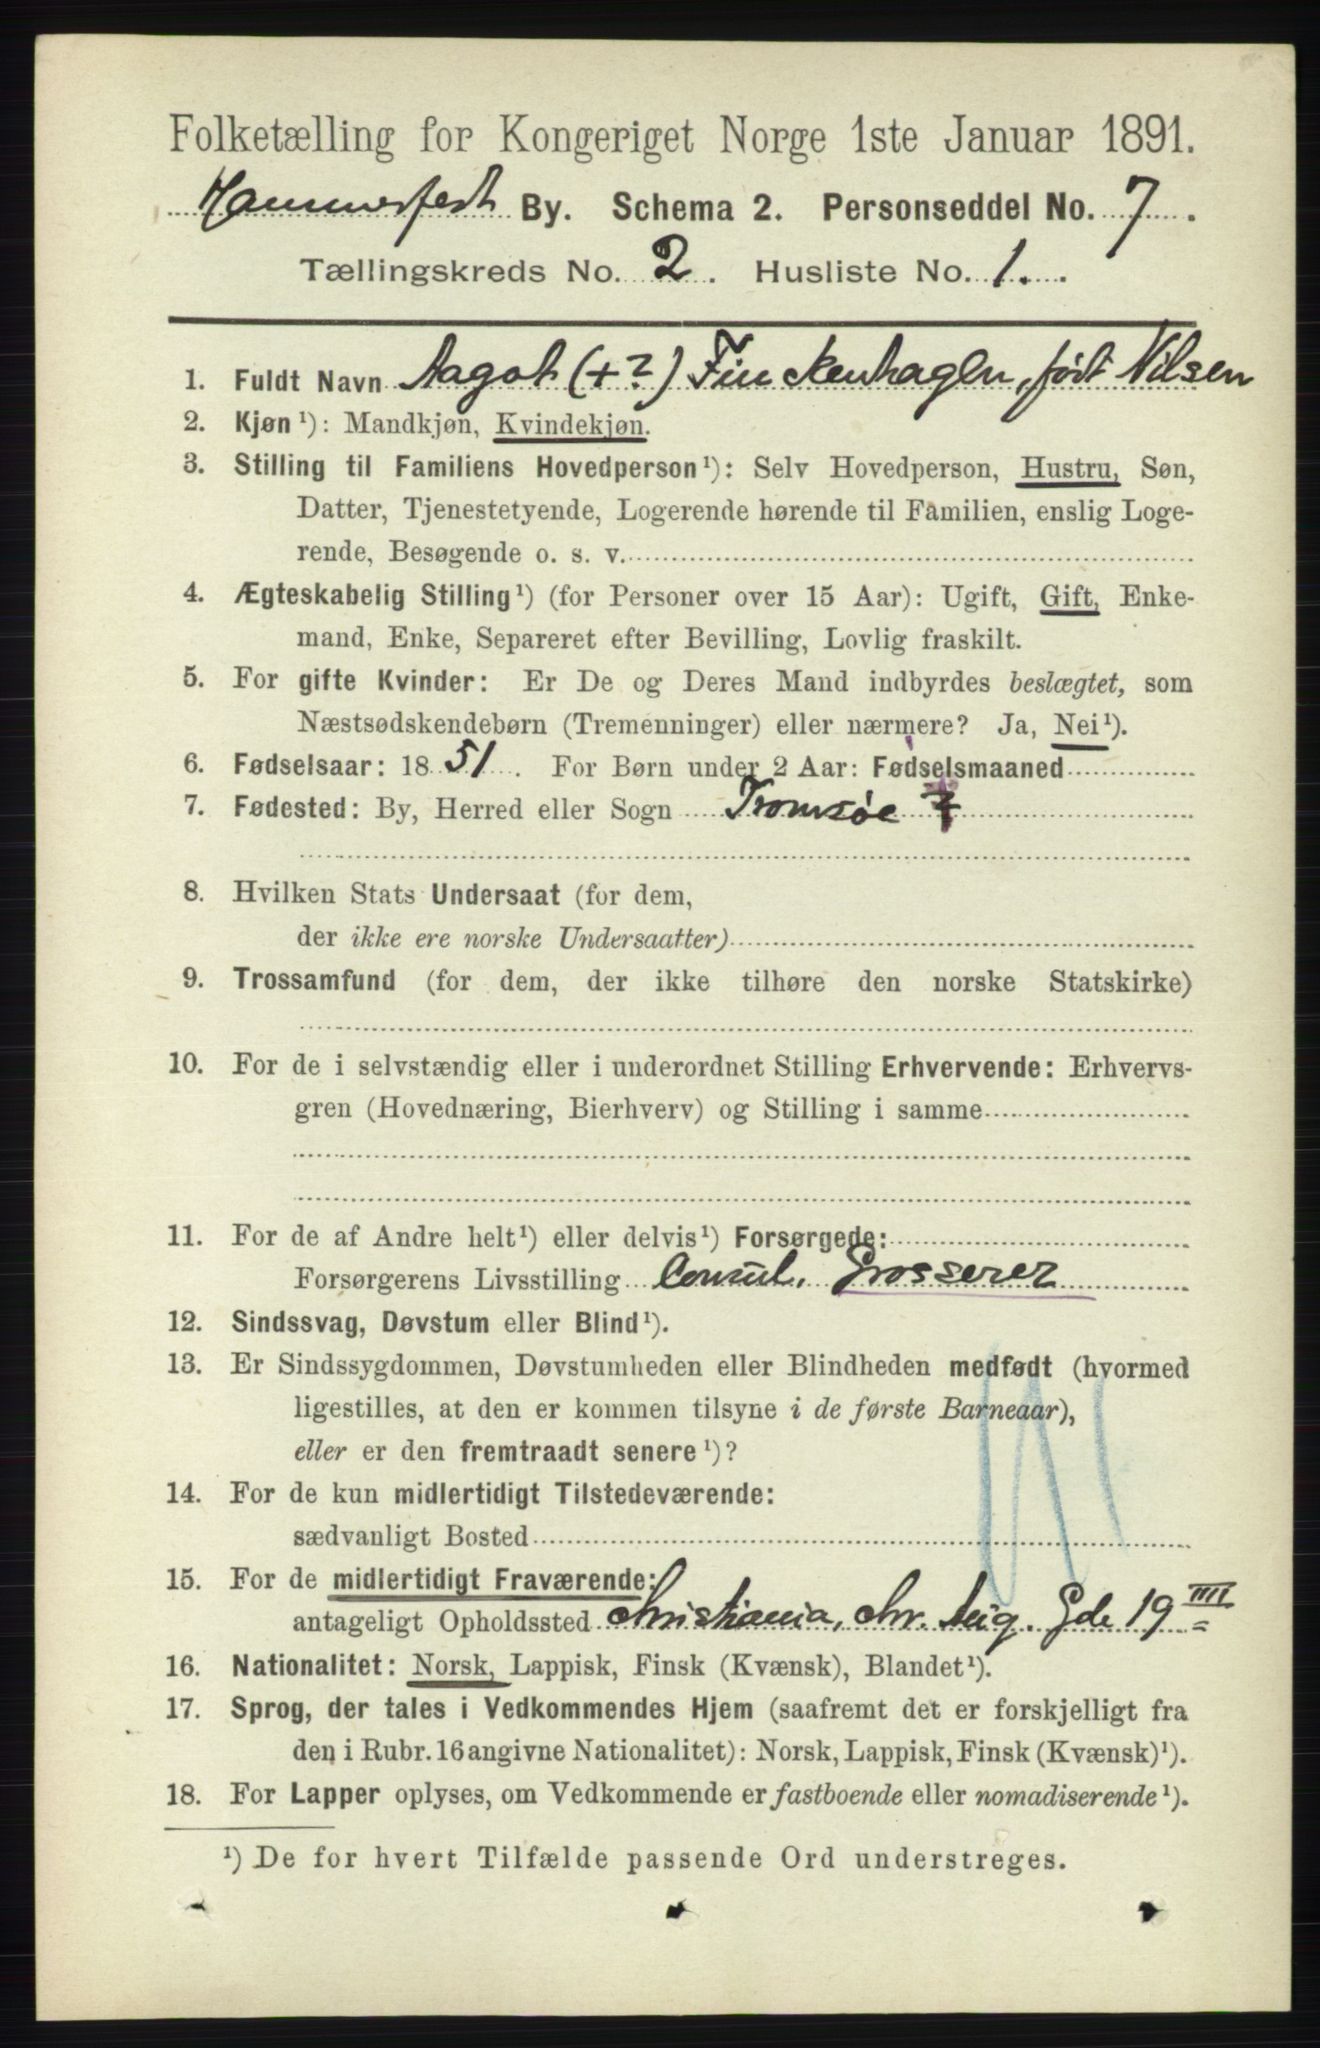 Folketælling for Kongeriget Norge 1ste Januar 1891.
Hammerfest By. Schema 2. Personseddel No. 7.
Tællingskreds No. 2. Husliste No. 1.
1. Fuldt Navn Aagot (+?) Finckenhagen, født Nilsen
2. Kjøn¹): Mandkjøn, Kvindekjøn.
3. Stilling til Familiens Hovedperson¹): Selv Hovedperson, Hustru, Søn,
Datter, Tjenestetyende, Logerende hørende til Familien, enslig Loge-
rende, Besøgende o. s. v.
4. Ægteskabelig Stilling¹) (for Personer over 15 Aar): Ugift, Gift, Enke-
mand, Enke, Separeret efter Bevilling, Lovlig fraskilt.
5. For gifte Kvinder: Er De og Deres Mand indbyrdes beslægtet, som
Næstsødskendebørn (Tremenninger) eller nærmere? Ja, Nei¹).
6. Fødselsaar: 1851. For Børn under 2 Aar: Fødselsmaaned
7. Fødested: By, Herred eller Sogn Tromsøe
8. Hvilken Stats Undersaat (for dem,
der ikke ere norske Undersaatter)
9. Trossamfund (for dem, der ikke tilhøre den norske Statskirke)
10. For de i selvstændig eller i underordnet Stilling Erhvervende: Erhvervs-
gren (Hovednæring, Bierhverv) og Stilling i samme
11. For de af Andre helt¹) eller delvis¹) Forsørgede:
Forsørgerens Livsstilling Consul. Grosserer
12. Sindssvag, Døvstum eller Blind¹).
13. Er Sindssygdommen, Døvstumheden eller Blindheden medfødt (hvormed
ligestilles, at den er kommen tilsyne i de første Barneaar),
eller er den fremtraadt senere¹)?
14. For de kun midlertidigt Tilstedeværende:
sædvanligt Bosted
15. For de midlertidigt Fraværende:
antageligt Opholdssted Christiania, Chr. Aug. Gde 19 IIII
16. Nationalitet: Norsk, Lappisk, Finsk (Kvænsk), Blandet¹).
17. Sprog, der tales i Vedkommendes Hjem (saafremt det er forskjelligt fra
den i Rubr. 16 angivne Nationalitet): Norsk, Lappisk, Finsk (Kvænsk)¹).
18. For Lapper oplyses, om Vedkommende er fastboende eller nomadiserende¹).
¹) De for hvert Tilfælde passende Ord understreges.